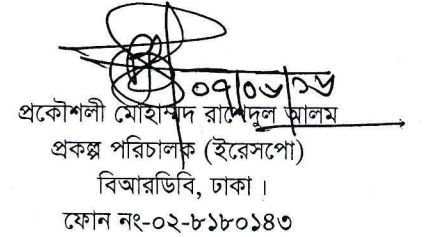 প্রকৌশলী মোহাম্মদ রাশেদুল আলম
প্রকল্প পরিচালক (ইরেসপো)
বিআরডিবি, ঢাকা ।
ফোন নং-০২-৮১৮০১৪৩